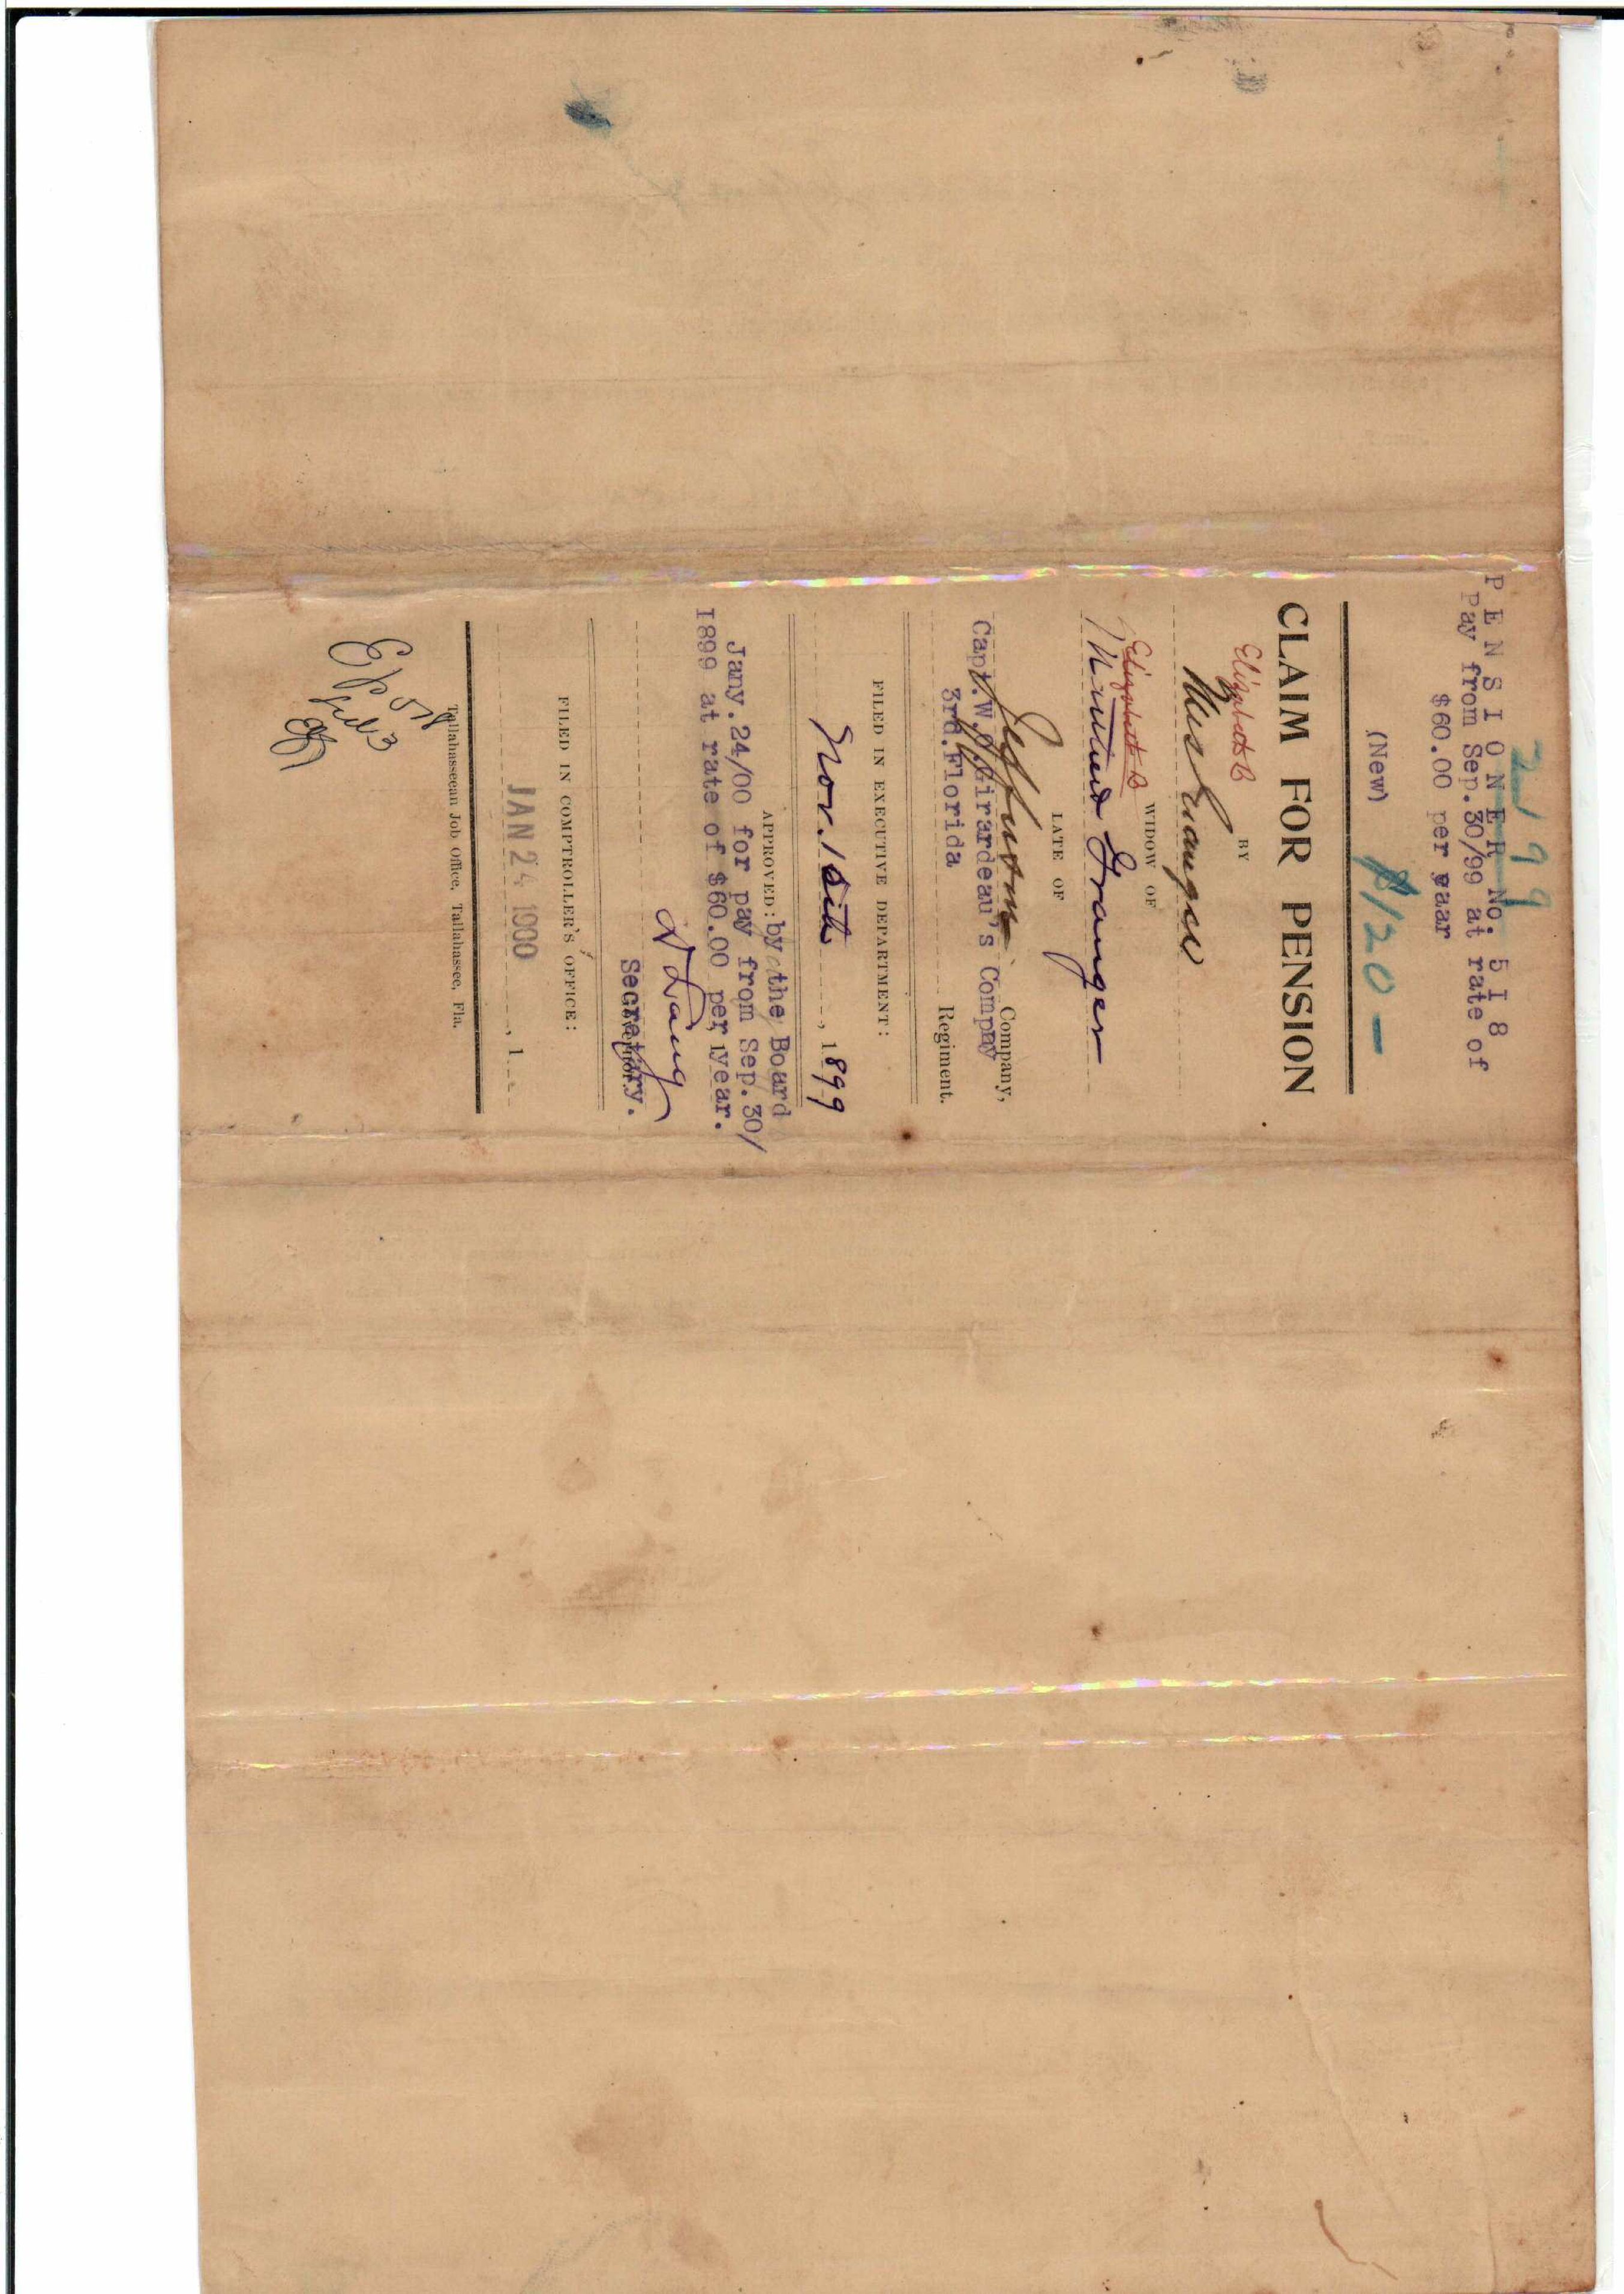 2199
P E N S I O N E R No. 5 I 8
Pay from Sep.30/99 at rate of
$60.00 per yaar
(New) $120 —
CLAIM FOR PENSION
BY
Elizabeth B
Mrs Granger
WIDOW OF
Elizabeth B
Granger
LATE OF
Company,
Capt.W.O.Girardeau's Compny
3rd.Florida Regiment.
FILED IN EXECUTIVE DEPARTMENT:
Nov. 18th, 1899
APPROVED: by the Board
Jany.24/00 for pay from Sep.30/
1899 at rate of $60.00 per year.
D Lang
Secretary.
FILED IN COMPTROLLER'S OFFICE:
JAN 24 1900, 1
Tallahasseean Job Office, Tallahassee, Fla.
518